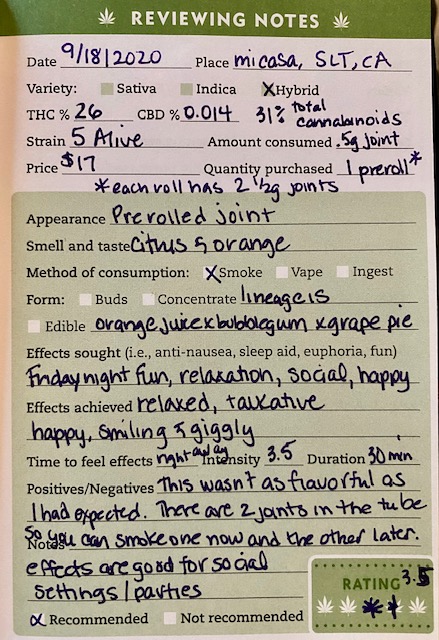 REVIEWING NOTES
Date 9/18/2020 Place mi casa, SLT, CA
Variety: Sativa Indica Hybrid
THC % 26 CBD % 0.014 31% total cannabinoids
Strain 5 Alive Amount consumed .5g joint
Price $17 Quantity purchased 1 preroll*
*each roll has 2 1/2g joints
Appearance Prerolled joint
Smell and taste Citrus & orange
Method of consumption: Smoke Vape Ingest
Form: Buds Concentrate lineage is
Edible orange juice x bubblegum x grape pie
Effects sought (i.e., anti-nausea, sleep aid, euphoria, fun)
Friday night fun, relaxation, social, happy
Effects achieved relaxed, talkative
happy, smiling & giggly
Time to feel effects right away Intensity 3.5 Duration 30 min
Positives/Negatives This wasn't as flavorful as
I had expected. There are 2 joints in the tube
Notes so you can smoke one now and the other later.
effects are good for social
settings/parties
RATING 3.5
Recommended Not recommended